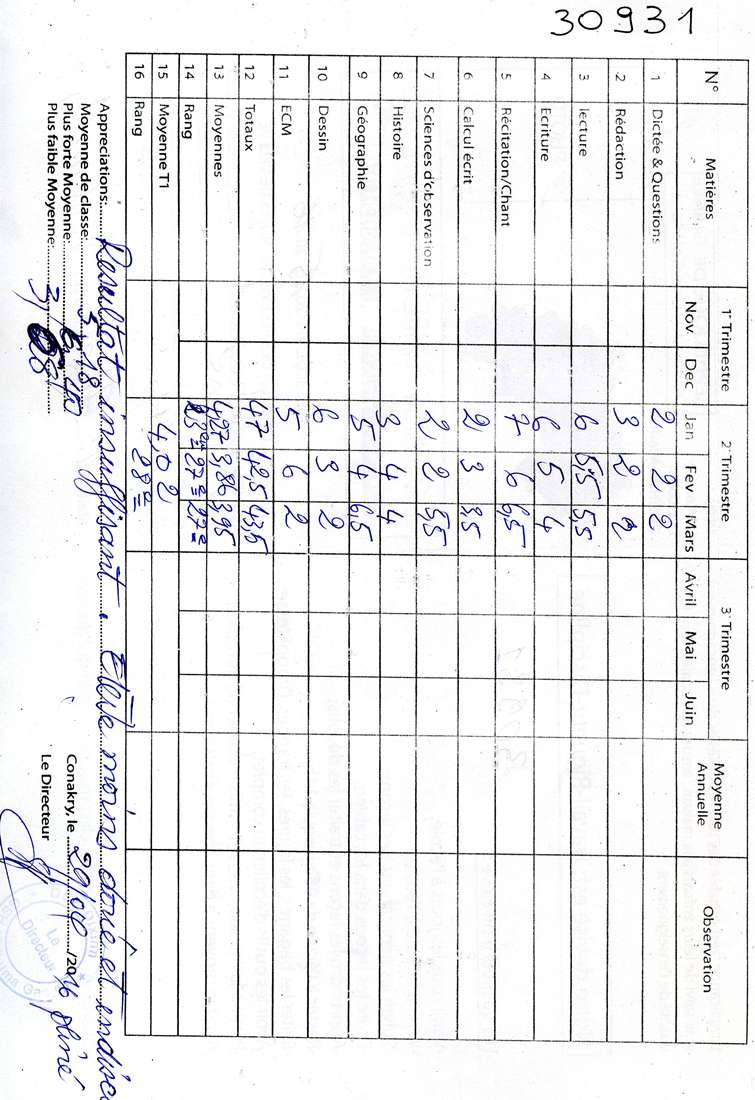 30931
N° Matières 1° Trimestre 2° Trimestre 3° Trimestre Moyenne Annuelle Observation
Nov. Dec Jan Fev Mars Avril Mai Juin
1 Dictée & Questions 2 2 2
2 Rédaction 3 2 2
3 lecture 6 5,5 5,5
4 Ecriture 6 5 4
5 Récitation/Chant 7 6 6,5
6 Calcul écrit 2 3 3,5
7 Sciences d'observation 2 2 5,5
8 Histoire 3 4 4
9 Géographie 5 4 6,5
10 Dessin 6 3 2
11 ECM 5 6 2
12 Totaux 47 42,5 43,5
13 Moyennes 4,27 3,86 3,95
14 Rang 27e 27e
15 Moyenne T1 4,02
16 Rang 28e
Appreciations: Resultat insuffisant. Elève moins doué et
Moyenne de classe: 5,18
Plus forte Moyenne: 6,40
Plus faible Moyenne: 3,
Conakry, le 29/04/2016
Le Directeur